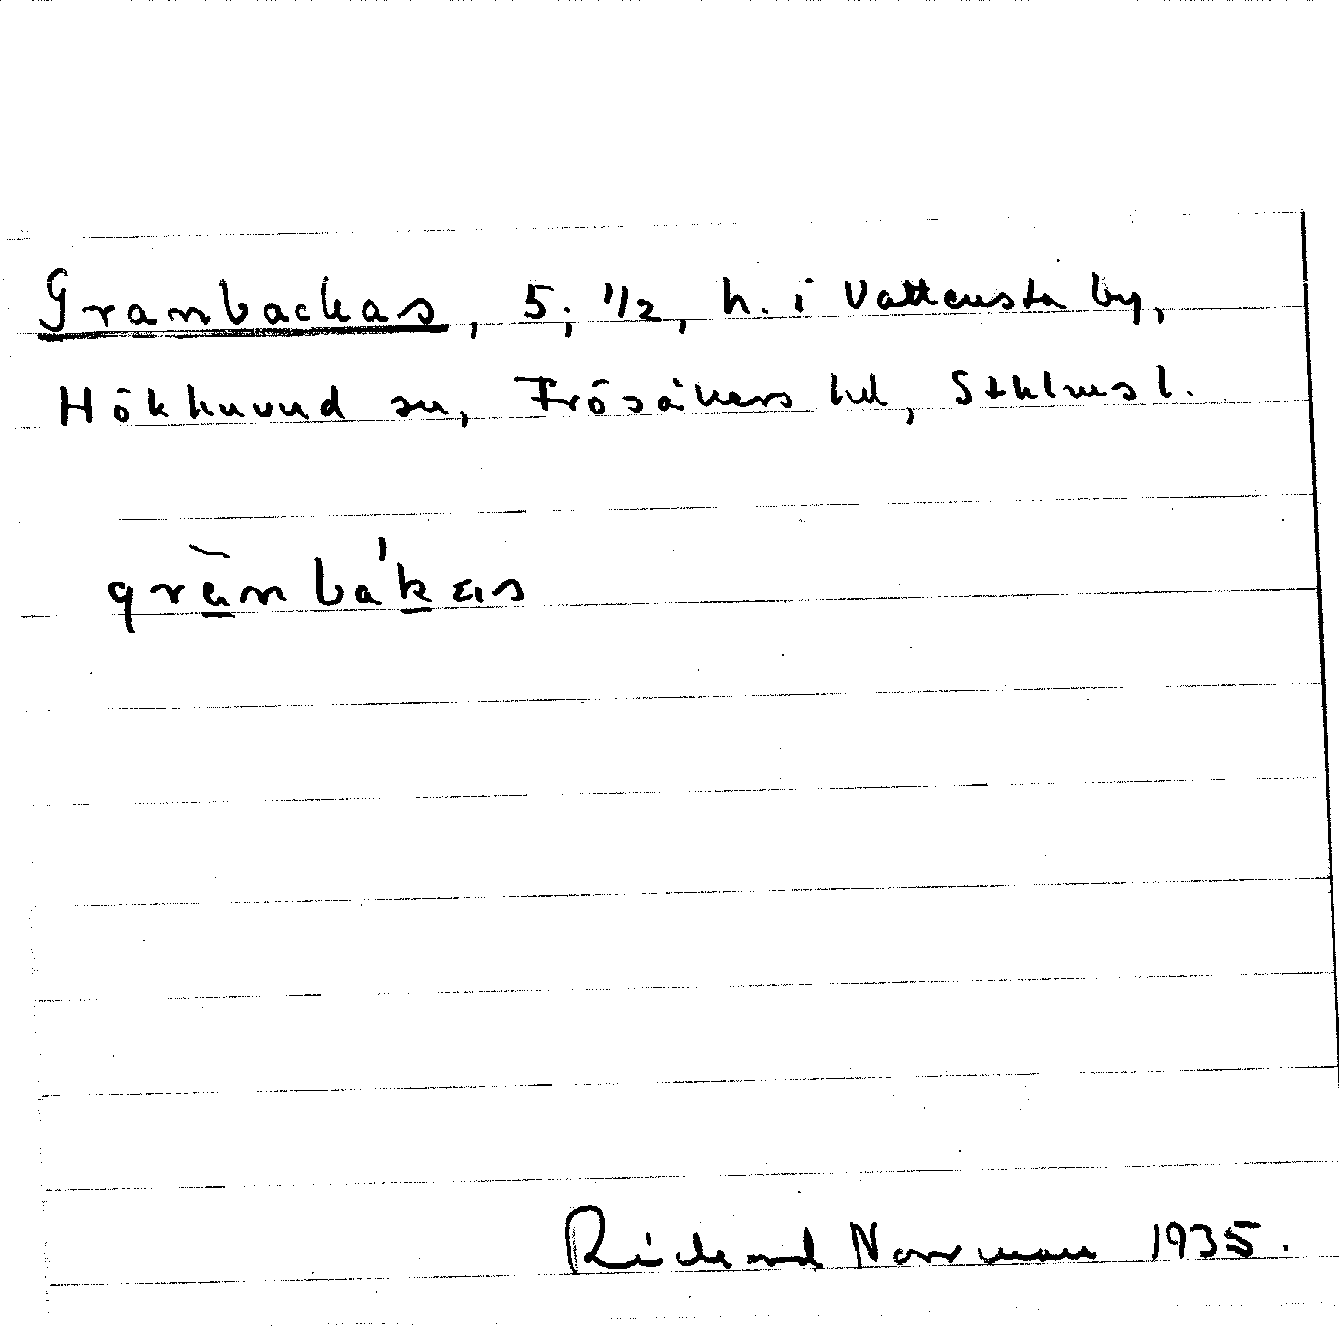 Granbackas, 5; 1/2, h. i Vattensta by,
Hökhuvud sn, Frösåkers hd, Sthlms l.
grànbákas
Richard Norrman 1935.